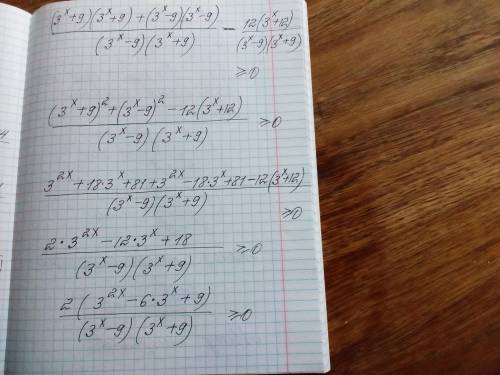 ((3^x+9)(3^x+9)+(3^x-9)(3^x-9))/((3^x-9)(3^x+9)) - (12(3^x+12))/((3^x-9)(3^x+9))
≥0
((3^x+9)^2+(3^x-9)^2-12(3^x+12))/((3^x-9)(3^x+9)) ≥0
(3^{2x}+18·3^x+81+3^{2x}-18·3^x+81-12(3^x+12))/((3^x-9)(3^x+9)) ≥0
(2·3^{2x}-12·3^x+18)/((3^x-9)(3^x+9)) ≥0
(2(3^{2x}-6·3^x+9))/((3^x-9)(3^x+9)) ≥0